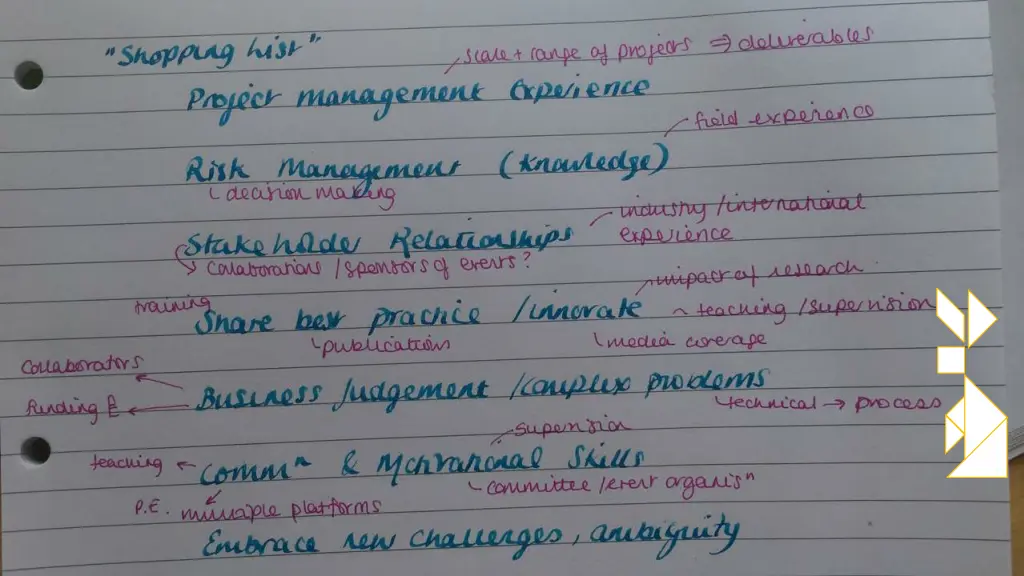 "Shopping list"
scale + range of projects ⇒ deliverables
Project management Experience
field experience
Risk Management (knowledge)
decision making
industry/international
Stakeholder Relationships
experience
collaborations/sponsors of events?
impact of research
training
Share best practice/innovate
teaching/supervision
publication
media coverage
collaborators
Business Judgement/complex problems
funding £
technical → process
supervision
teaching
Commⁿ & Motivational Skills
committee/event organisⁿ
P.E. multiple platforms
Embrace new challenges, ambiguity